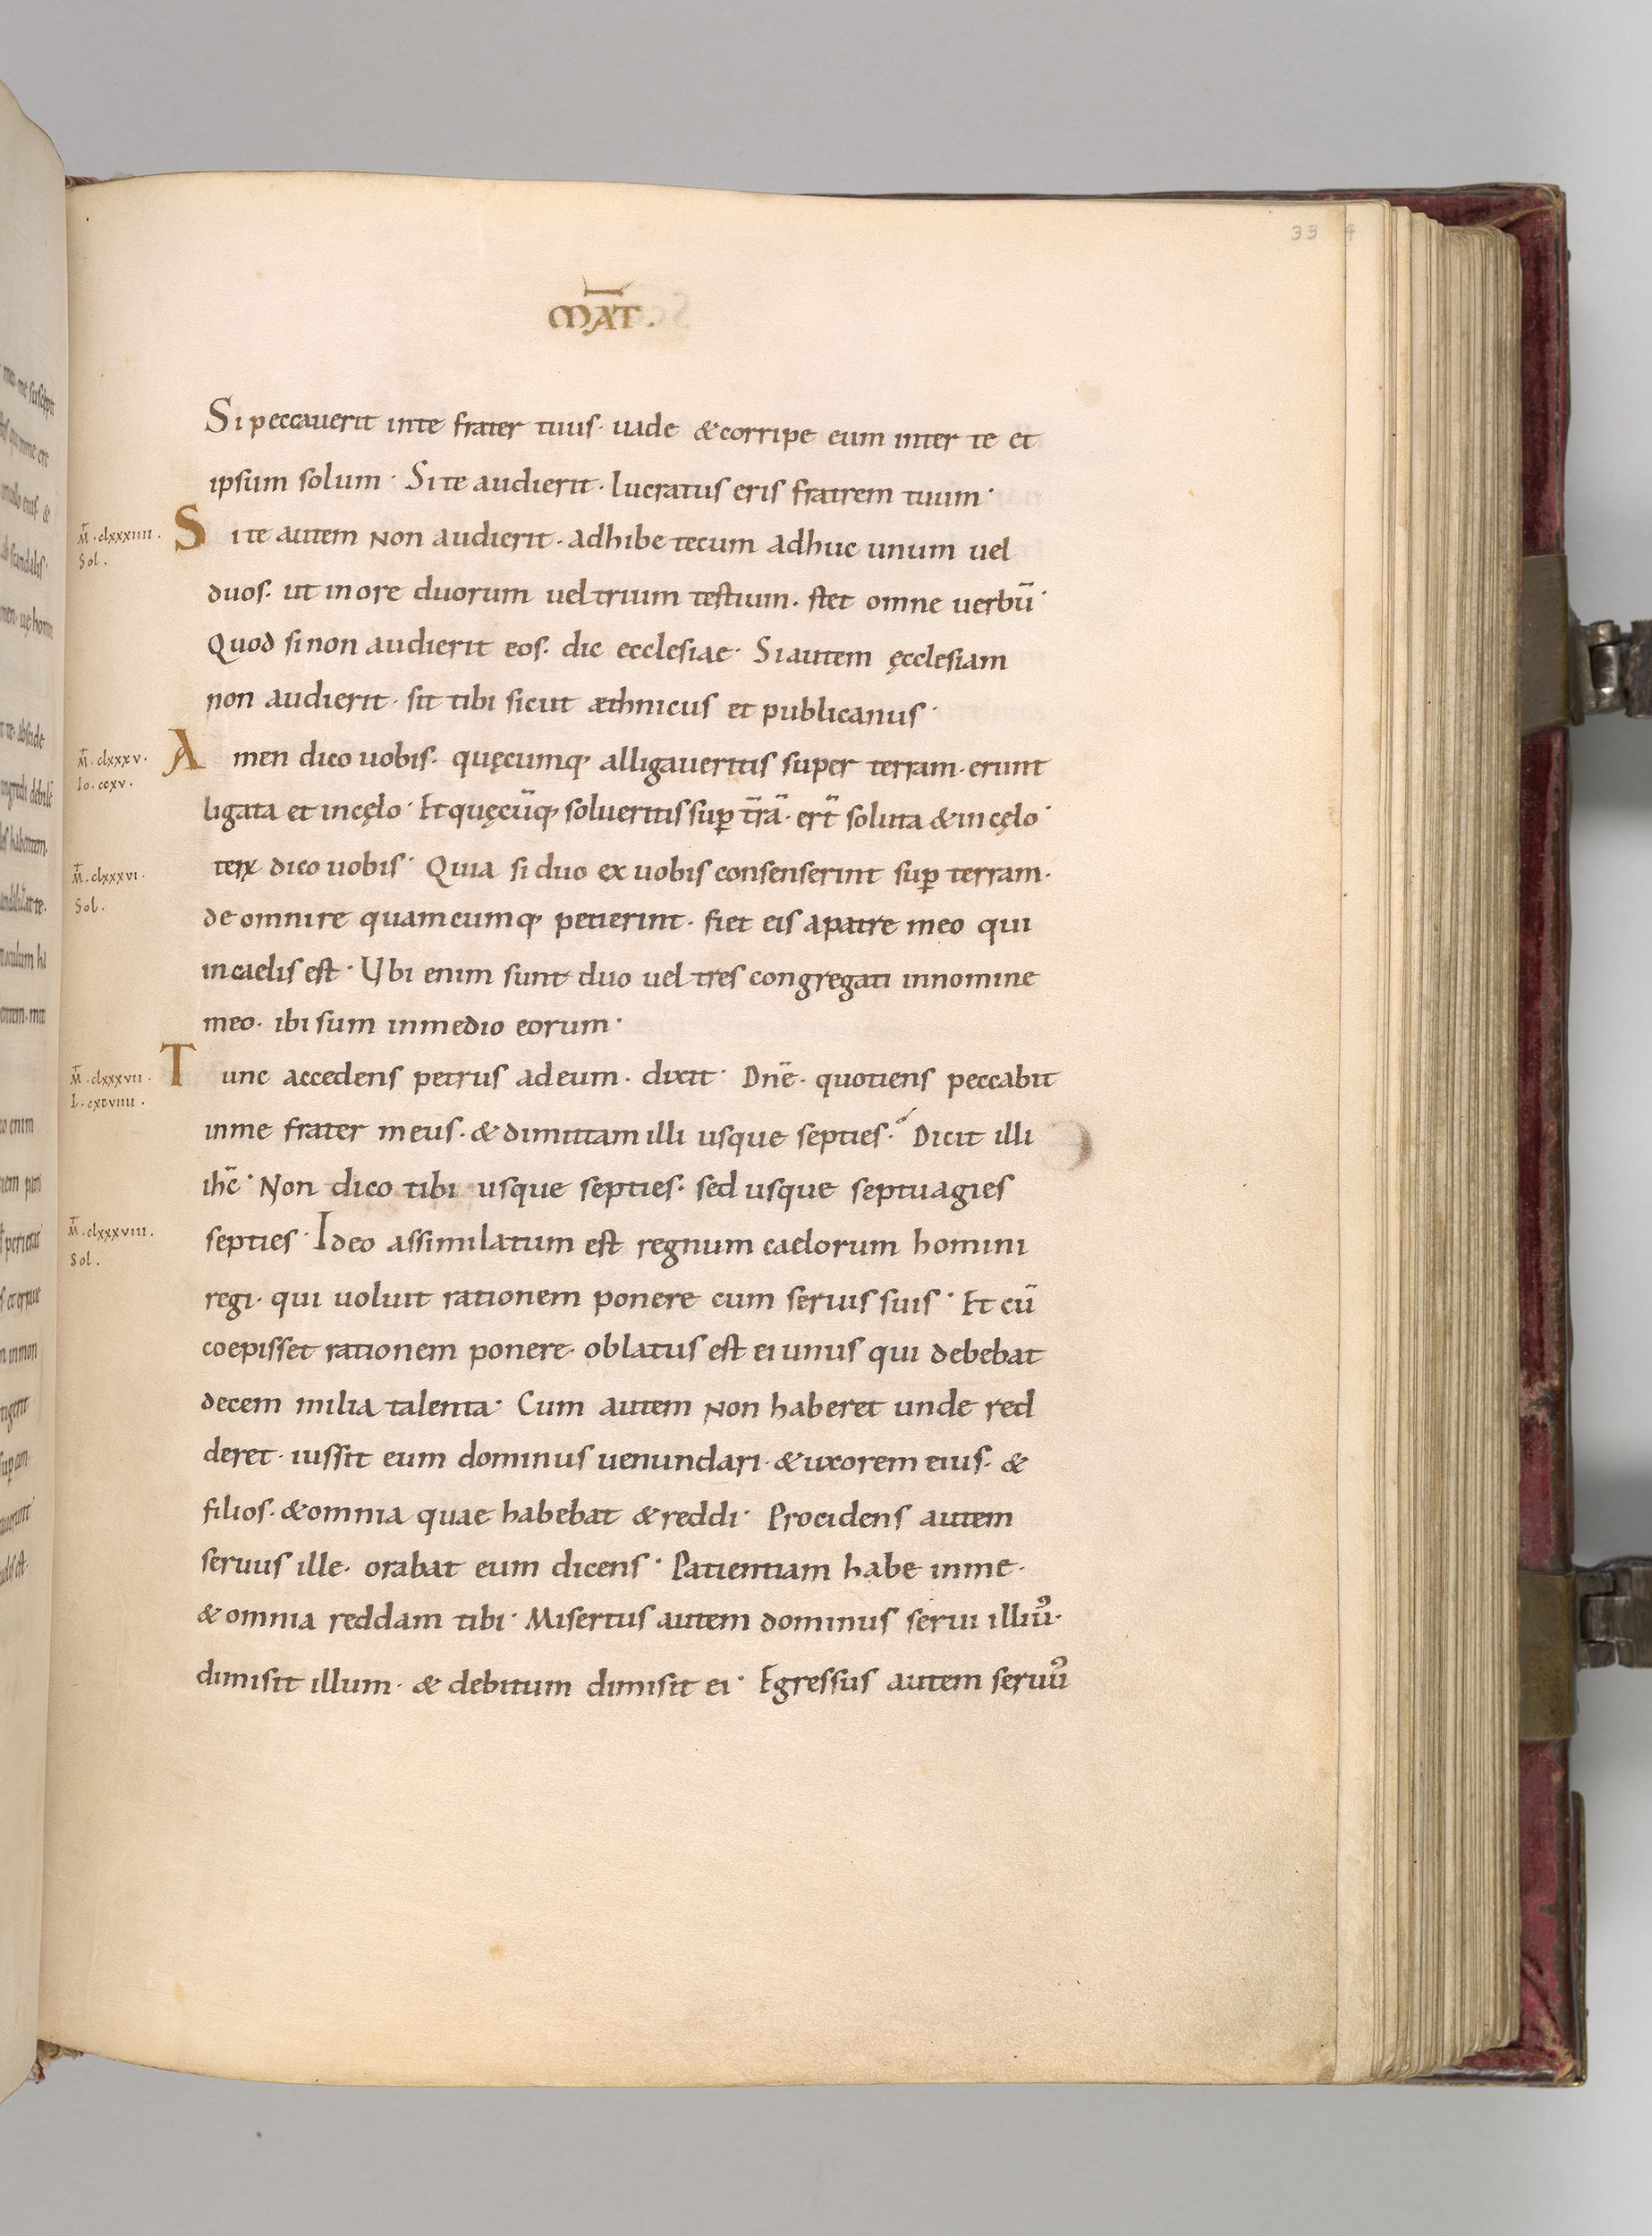 33
MAT̅.
Si peccauerit inte frater tuus· uade &corripe eum inter te et
ipsum solum· Si te audierit· lucratus eris fratrem tuum·
M̅·clxxxiiii·
Sol.
Si te autem non audierit· adhibe tecum adhuc unum uel
duos· ut in ore duorum uel trium testium· stet omne uerbū·
Quod si non audierit eos· dic ecclesiae· Si autem ęcclesiam
non audierit· sit tibi sicut æthnicus et publicanus·
M̅·clxxxv·
Io·ccxv·
Amen dico uobis· quęcumq· alligaueritis super terram· erunt
ligata et in cęlo· Et quęcūq· solueritis sup̄ t̄rā· er̄t soluta &in cęlo·
M̅·clxxxvi·
Sol.
terx dico uobis· Quia si duo ex uobis consenserint sup̄ terram·
de omni re quamcumq· petierint· fiet eis a patre meo qui
in caelis est· Ubi enim sunt duo uel tres congregati in nomine
meo· ibi sum in medio eorum·
M̅·clxxxvii·
L·cxcviiii·
Tunc accedens petrus ad eum· dixit· Dn̄e· quotiens peccabit
in me frater meus· & dimittam illi usque septies·? Dicit illi
ihc̄· Non dico tibi usque septies· sed usque septuagies
M̅·clxxxviii·
Sol.
septies· Ideo assimilatum est regnum caelorum homini
regi· qui uoluit rationem ponere cum seruis suis· Et cū
coepisset rationem ponere· oblatus est ei unus qui debebat
decem milia talenta· Cum autem non haberet unde red
deret· iussit eum dominus uenundari· &uxorem eius· &
filios· &omnia quae habebat &reddi· Procidens autem
seruus ille· orabat eum dicens· Patientiam habe in me·
&omnia reddam tibi· Misertus autem dominus serui illiuꝰ·
dimisit illum· & debitum dimisit ei· Egressus autem seruuꝰ